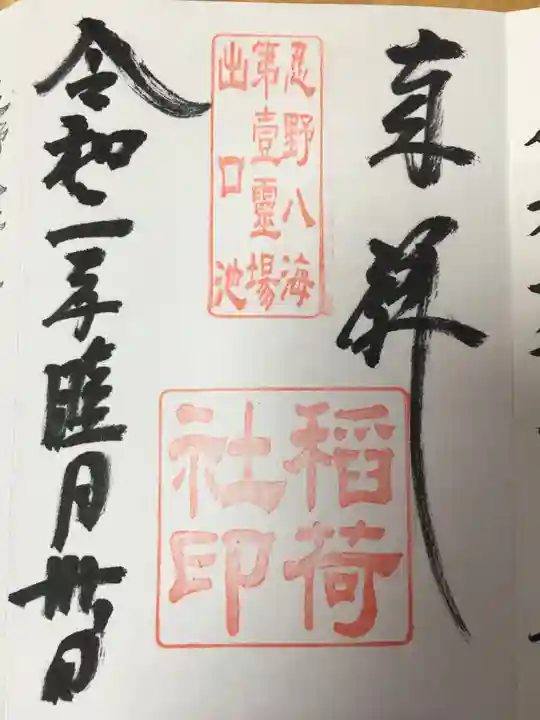 奉拝
忍野八海
第壹靈場
出口池
稲荷
社印
令和二年陸月卅日